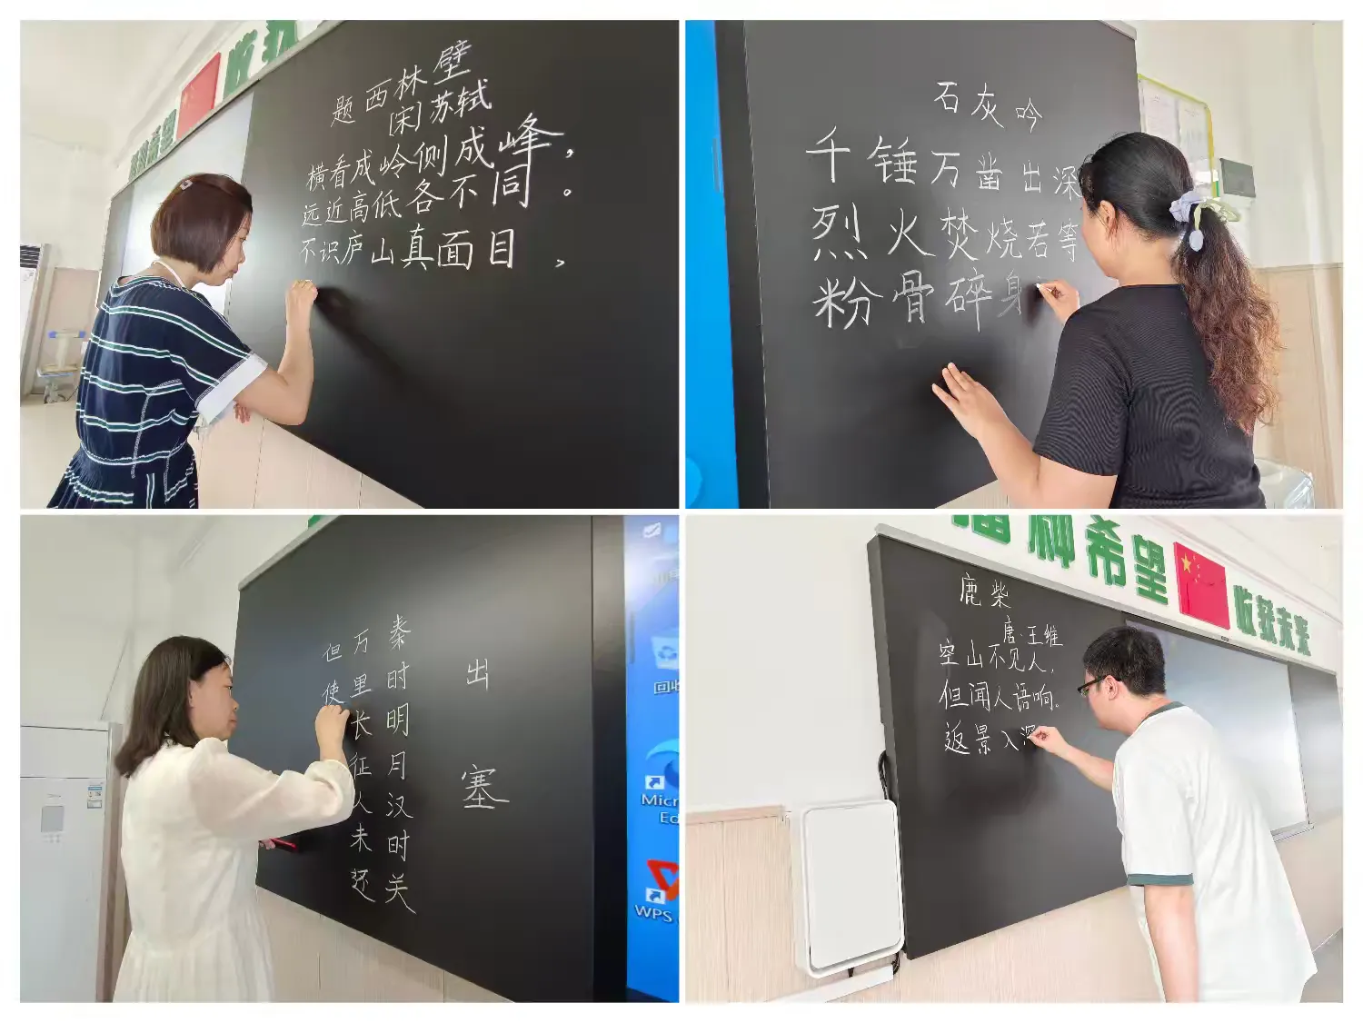 题西林壁
[宋]苏轼
横看成岭侧成峰，
远近高低各不同。
不识庐山真面目，
石灰吟
千锤万凿出深
烈火焚烧若等
粉骨碎身
出塞
秦时明月汉时关
万里长征人未还
但使
回收
Micr
Ed
WPS
播种希望
收获未来
鹿柴
唐·王维
空山不见人，
但闻人语响。
返景入深